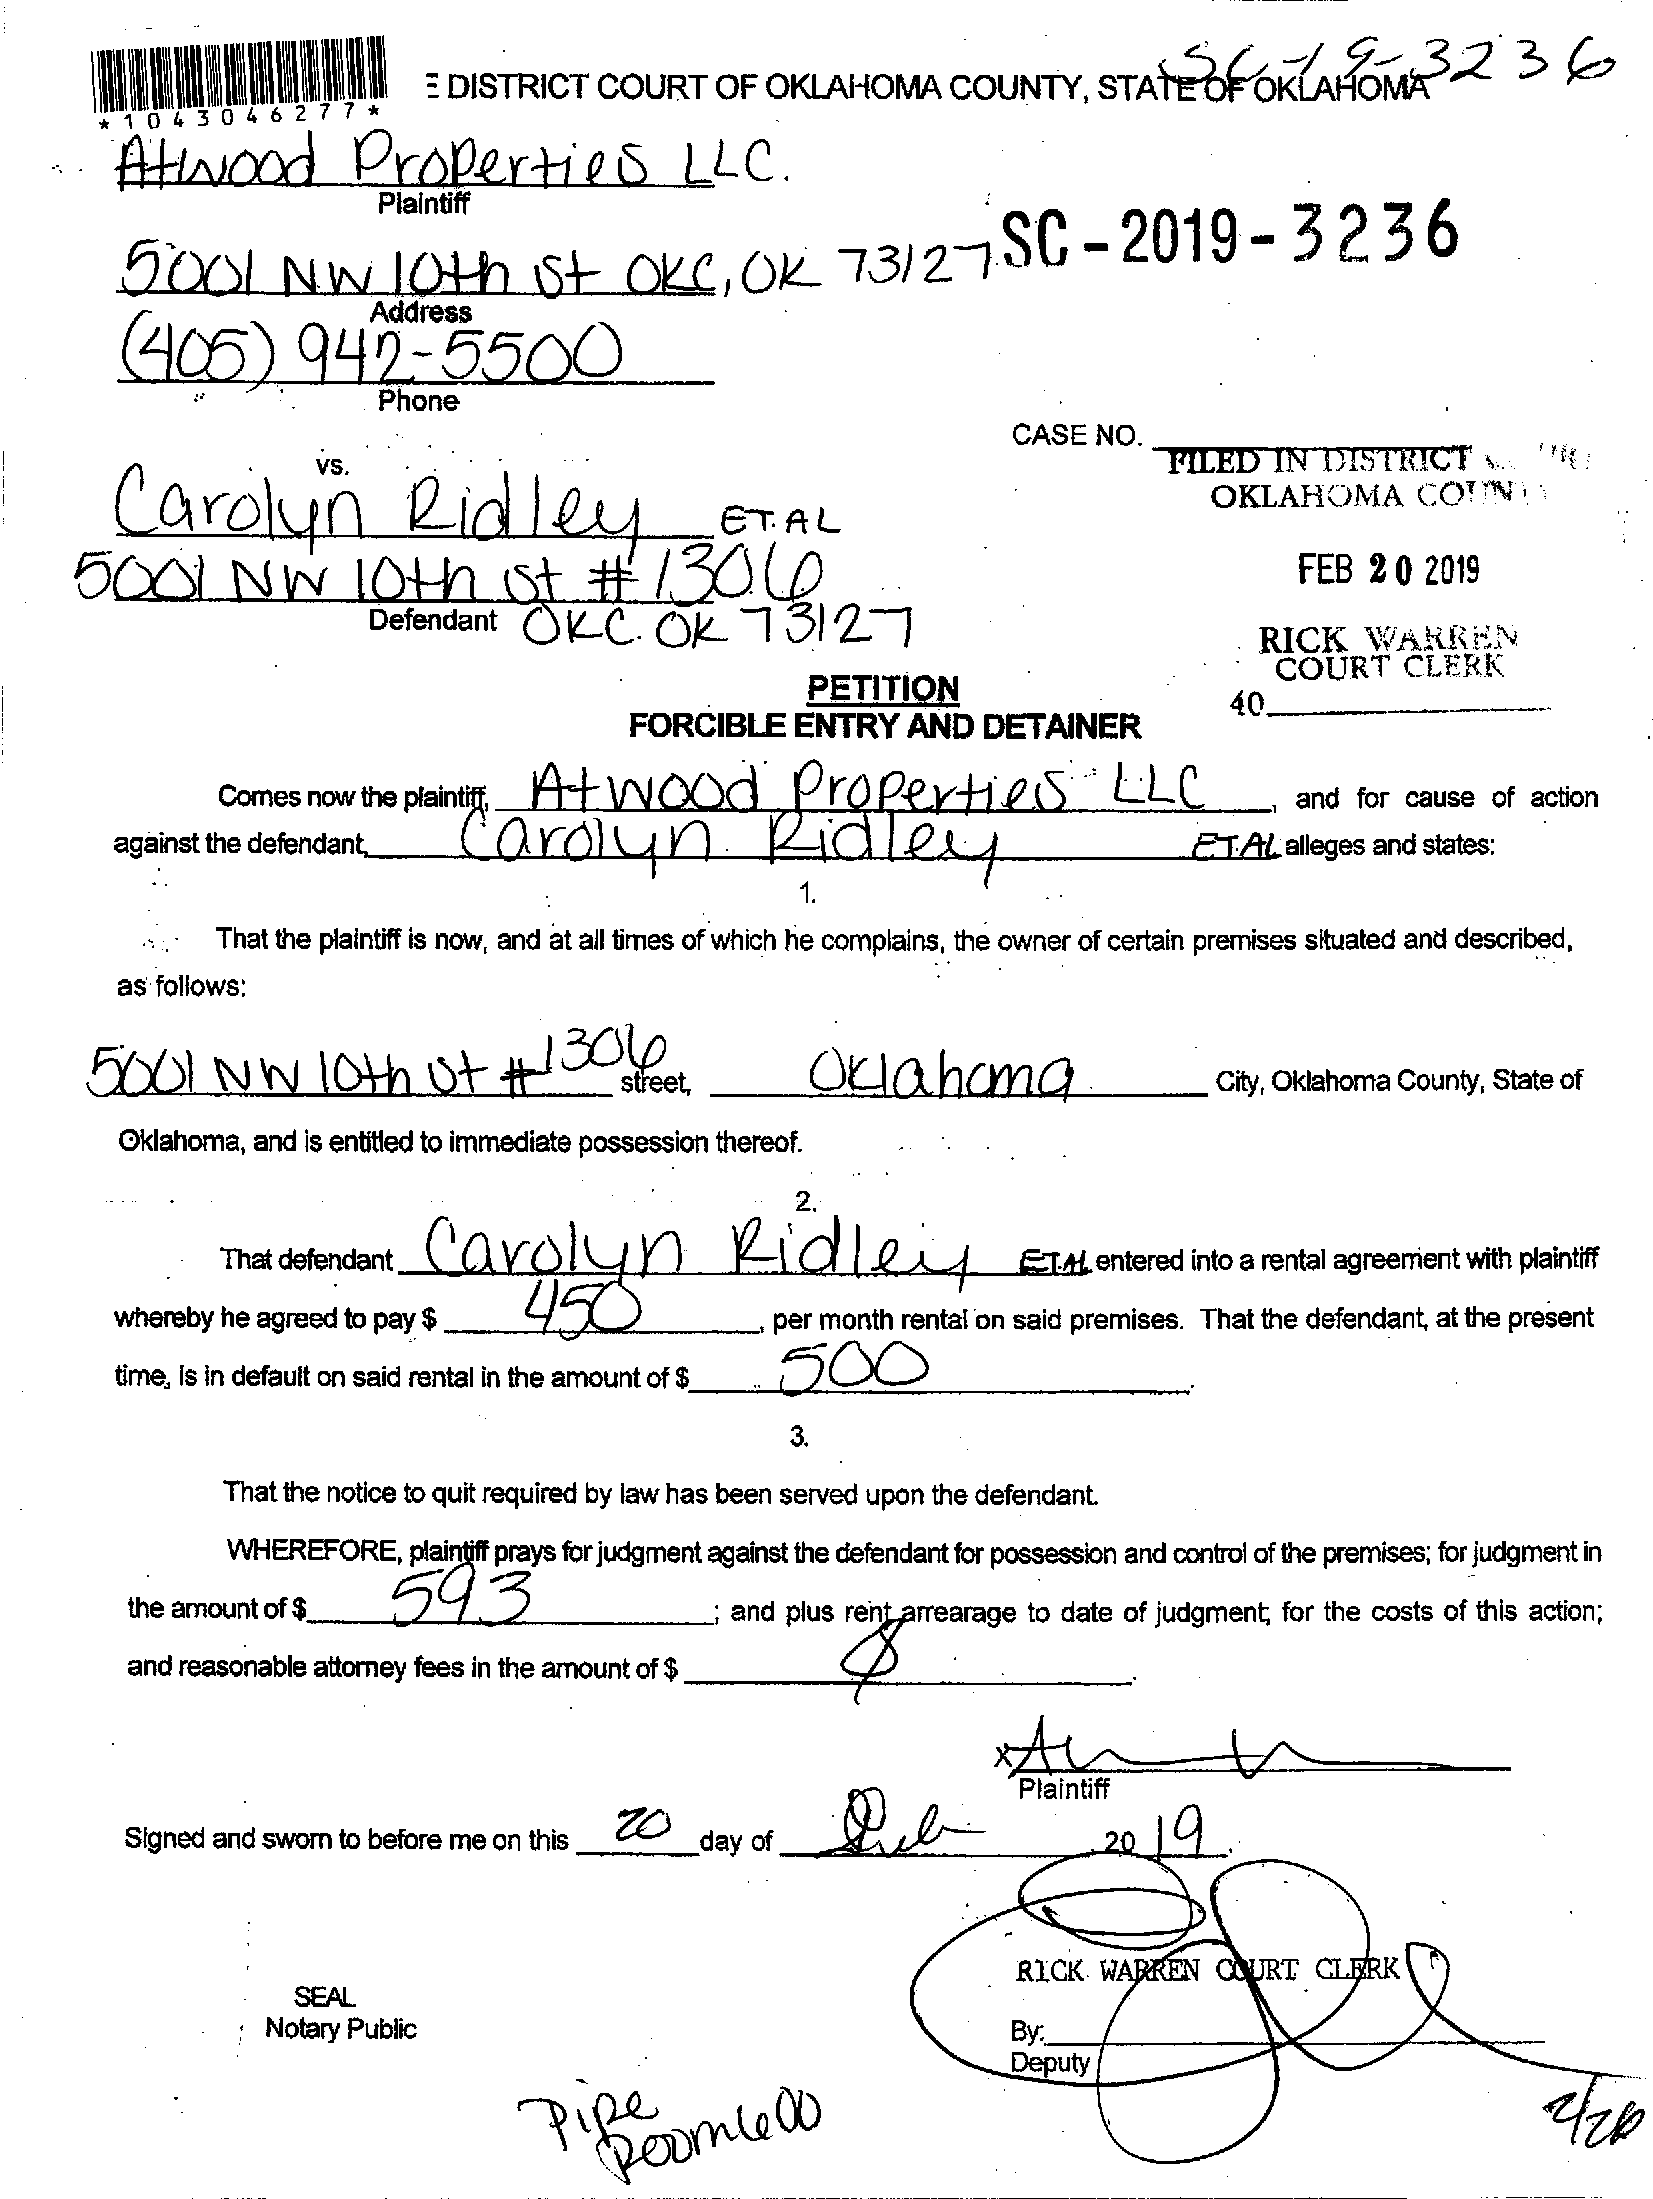 SC-19-3236
*1043046277*
E DISTRICT COURT OF OKLAHOMA COUNTY, STATE OF OKLAHOMA
Atwood Properties LLC.
Plaintiff
SC-2019-3236
5001 NW 10th St OKC, OK 73127
Address
(405) 942-5500
Phone
CASE NO.
FILED IN DISTRICT
OKLAHOMA COUNTY
vs.
Carolyn Ridley ET. AL
5001 NW 10th St #1306
FEB 20 2019
Defendant OKC. OK 73127
RICK WARREN
COURT CLERK
40
PETITION
FORCIBLE ENTRY AND DETAINER
Comes now the plaintiff, Atwood Properties LLC, and for cause of action
against the defendant, Carolyn Ridley ET.AL alleges and states:
1.
That the plaintiff is now, and at all times of which he complains, the owner of certain premises situated and described,
as follows:
5001 NW 10th St #1306 street, Oklahoma City, Oklahoma County, State of
Oklahoma, and is entitled to immediate possession thereof.
2.
That defendant Carolyn Ridley ET.AL entered into a rental agreement with plaintiff
whereby he agreed to pay $ 450, per month rental on said premises. That the defendant, at the present
time, is in default on said rental in the amount of $ 500.
3.
That the notice to quit required by law has been served upon the defendant.
WHEREFORE, plaintiff prays for judgment against the defendant for possession and control of the premises; for judgment in
the amount of $ 593; and plus rent arrearage to date of judgment; for the costs of this action;
and reasonable attorney fees in the amount of $ .
x
Plaintiff
Signed and sworn to before me on this 20 day of Feb, 2019.
RICK WARREN COURT CLERK
SEAL
Notary Public
By:
Deputy
Pipe
Room 600
2/26